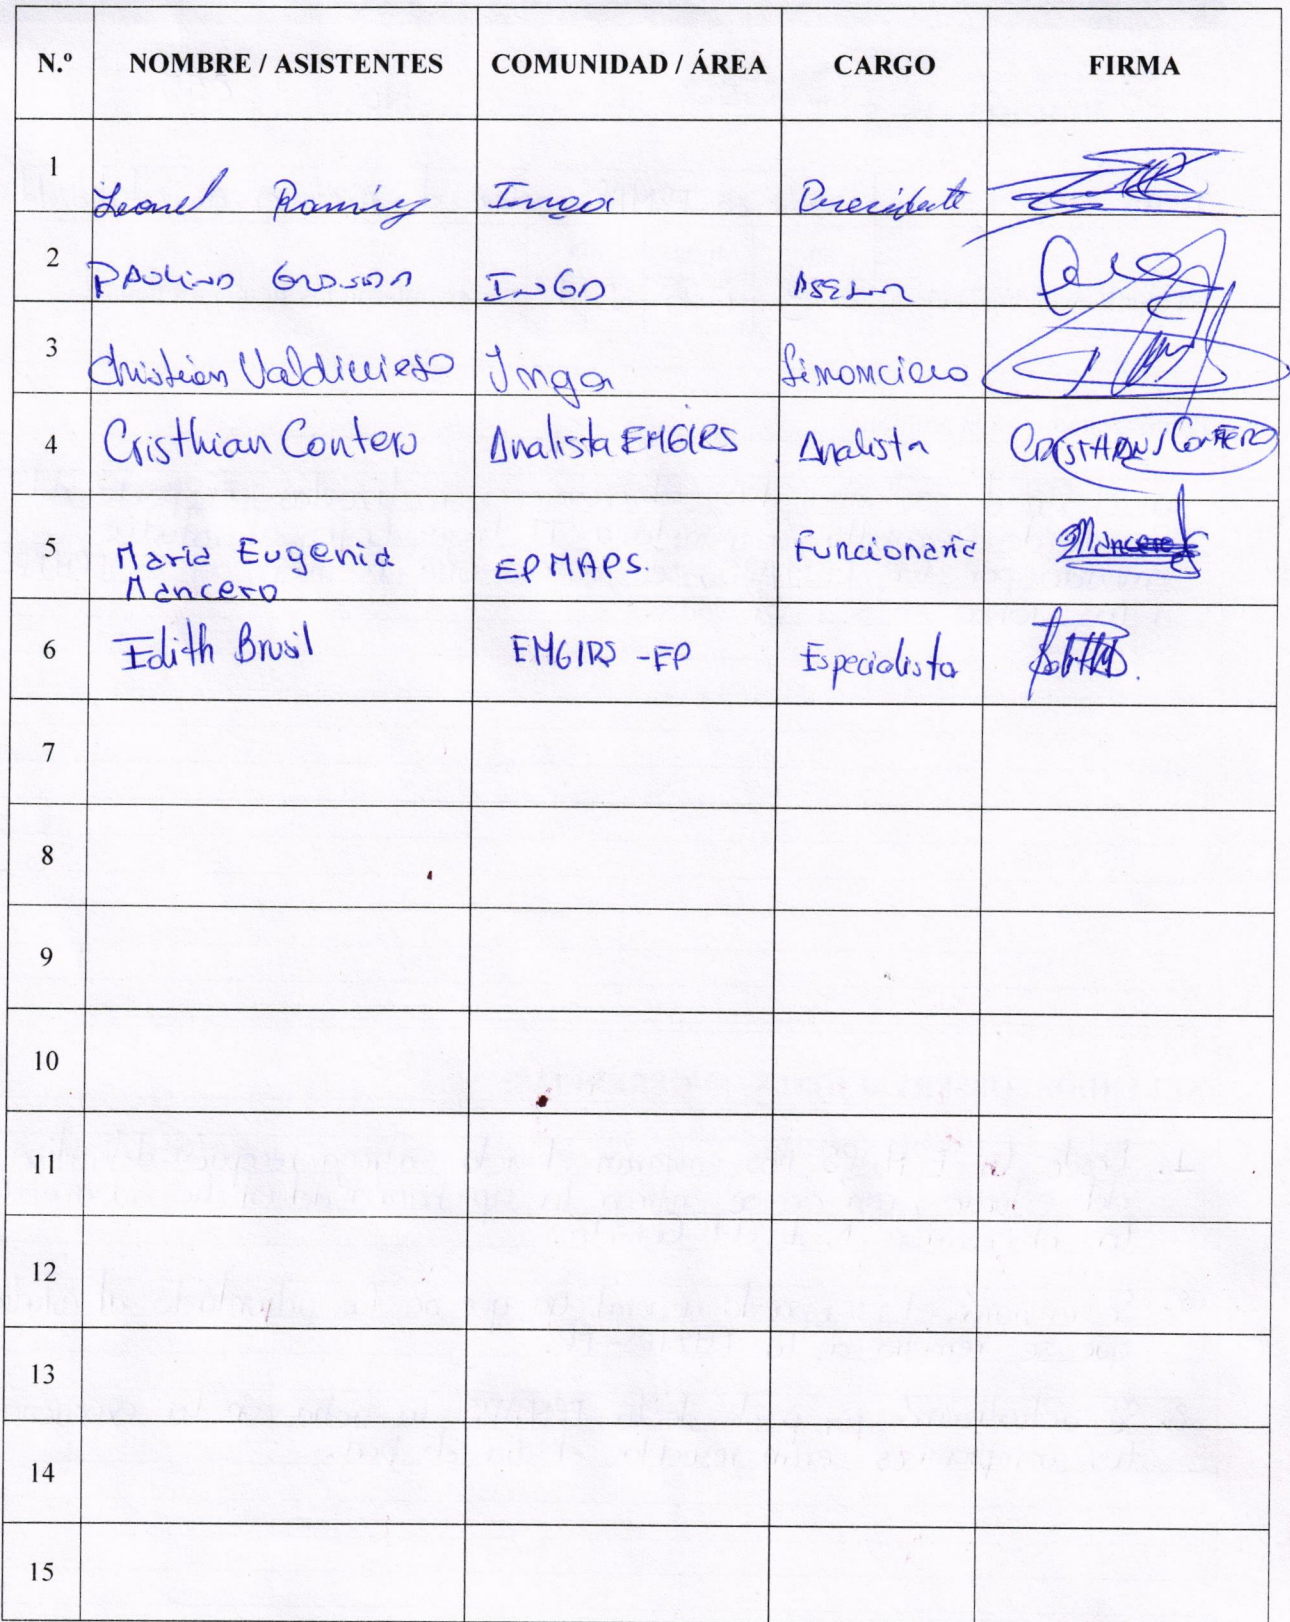 N.º NOMBRE / ASISTENTES COMUNIDAD / ÁREA CARGO FIRMA
1 Leonel Ramírez Inga Presidente
2 INGA Asesor
3 Christian Valdivieso Inga financiero
4 Cristhian Contero Analista EMGIRS Analista CRISTHIAN CONTERO
5 Maria Eugenia Mancero EPMAPS. Funcionaria Mancero
6 Edith Brusil EMGIRS - EP Especialista
7
8
9
10
11
12
13
14
15